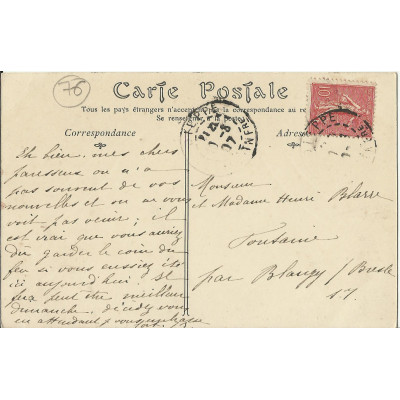 76
Carte Postale
Tous les pays étrangers n'acceptent pas la correspondance au re
Se renseigner à la po
Correspondance
Adresse
Eh bien, mes chers
paresseux on n'a
pas souvent de vos
nouvelles et on ne vous
voit pas venir ; il
est vrai que vous auriez
dû garder le coin du
feu si vous eussiez été
ici aujourd'hui. Il
fera peut être meilleur
dimanche. décidez vous
en attendant je vous embrasse
Monsieur
et Madame Henri Blarre
Fontaine
par Blangy / Bresle